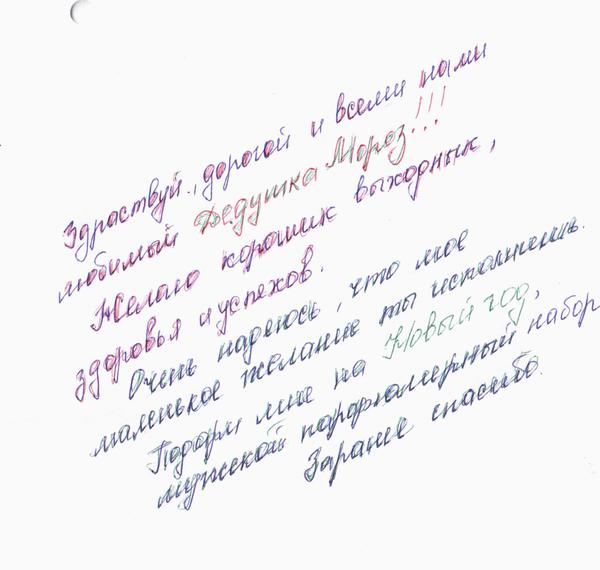 Здраствуй, дорогой и всеми нами
любимый Дедушка Мороз!!!
Желаю хороших выходных,
здоровья и успехов.
Очень надеюсь, что мое
маленькое желание ты исполнишь.
Подари мне на Новый год,
мужской парфюмерный набор
Заранее спасибо.